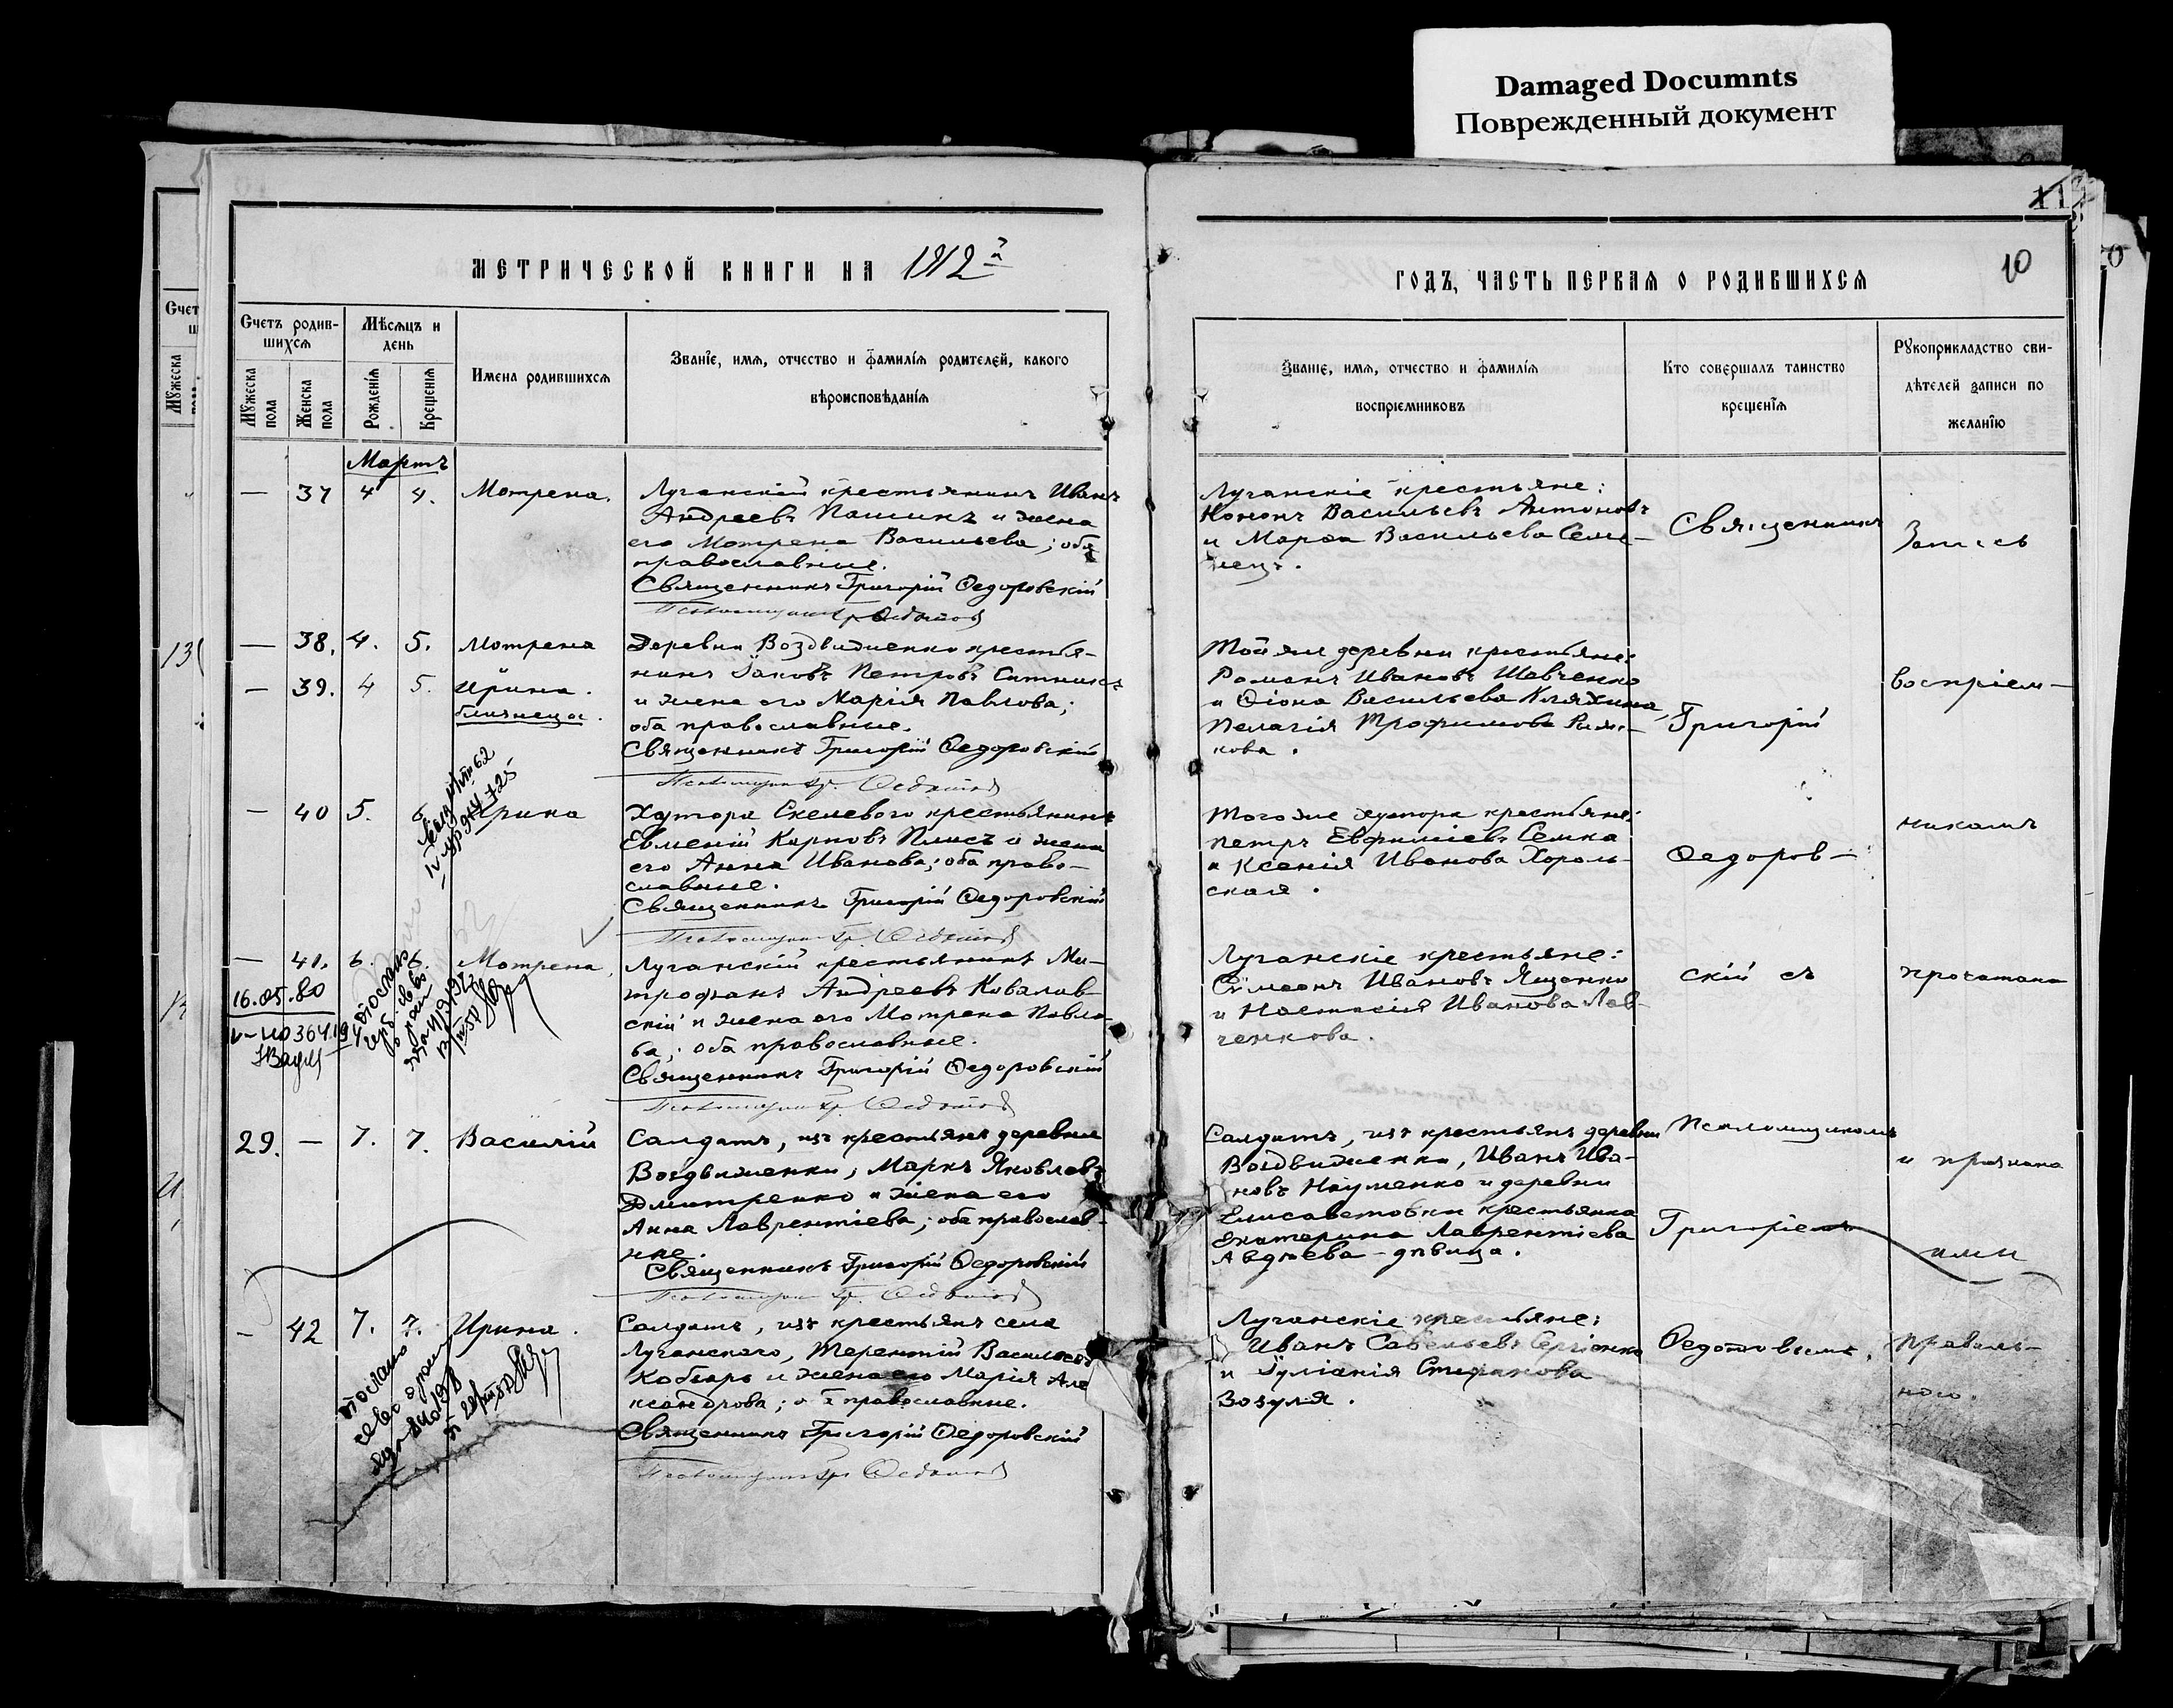 Damaged Documnts
Поврежденный документ
10
МЕТРИЧЕСКОЙ КНИГИ НА 1912й
ГОДЪ, ЧАСТЬ ПЕРВАЯ О РОДИВШИХСЯ
Счетъ родив-
шихся
Мужеска пола
Женска пола
Мѣсяцъ и
день
Рожденія
Крещенія
Имена родившихся
Званіе, имя, отчество и фамилія родителей, какого
вѣроисповѣданія
Званіе, имя, отчество и фамилія
воспріемниковъ
Кто совершалъ таинство
крещенія
Рукоприкладство сви-
дѣтелей записи по
желанію
Мартъ
— 37 4 4. Мотрена.
Луганскій крестьянинъ Иванъ
Андреевъ Пашинъ и жена
его Мотрена Васильева; оба
православные.
Священникъ Григорій Ѳедоровскій
Псаломщикъ Гр. Ѳедотов
Луганскіе крестьяне:
Кононъ Васильевъ Антоновъ
и Марѳа Васильева Семе-
нецъ.
— 38. 4. 5. Мотрена
— 39. 4 5. Ирина.
близнецы.
Деревни Воздвиженки крестья-
нинъ Іаковъ Петровъ Ситникъ
и жена его Марія Павлова;
оба православные.
Священникъ Григорій Ѳедоровскій
Псаломщикъ Гр. Ѳедотов
Той же деревни крестьяне:
Романъ Ивановъ Шевченко
и Ѳіона Васильева Кляхина,
Пелагія Трофимова
кова.
— 40 5. Ирина
Хутора Скелевого крестьянинъ
Евменій Карповъ Плисъ и жена
его Анна Иванова; оба право-
славные.
Священникъ Григорій Ѳедоровскій
Псаломщикъ Гр. Ѳедотов
Того же хутора крестьяне:
Петръ Евфиміевъ Семка
и Ксенія Иванова Хороль-
ская.
— 41. 6. 6. Мотрена
Луганскій крестьянинъ Ми-
трофанъ Андреевъ Ковалев-
скій и жена его Мотрена Павло-
ва; оба православные.
Священникъ Григорій Ѳедоровскій
Псаломщикъ Гр. Ѳедотов
Луганскіе крестьяне:
Сѵмеонъ Ивановъ Ященко
и Настасія Иванова Лев-
ченкова.
16.05.80
29. — 7. 7. Василій
Солдатъ, изъ крестьянъ деревни
Воздвиженки, Маркъ Яковлевъ
Дмитренко и жена его
Анна Лаврентіева; оба православ-
ные.
Священникъ Григорій Ѳедоровскій
Псаломщикъ Гр. Ѳедотов
Солдатъ, изъ крестьянъ деревни
Воздвиженки, Иванъ Ива-
новъ Науменко и деревни
Елисаветовки крестьянка
Екатерина Лаврентіева
Авдѣева - дѣвица.
— 42 7. 7. Ирина.
Солдатъ, изъ крестьянъ села
Луганского, Терентій Васильевъ
Кобзарь и жена его Марія Але
ксандрова; оба православные.
Священникъ Григорій Ѳедоровскій
Псаломщикъ Гр. Ѳедотов
Луганскіе крестьяне:
Иванъ Савельевъ Сергіенко
и Іуліанія Стефанова
Зозуля.
Священникъ
Григорій
Ѳедоров-
скій съ
Псаломщикомъ
Григоріемъ
Ѳедотовымъ.
Запись
воспріем-
никамъ
прочитана
и признана
ими
правиль-
ною.